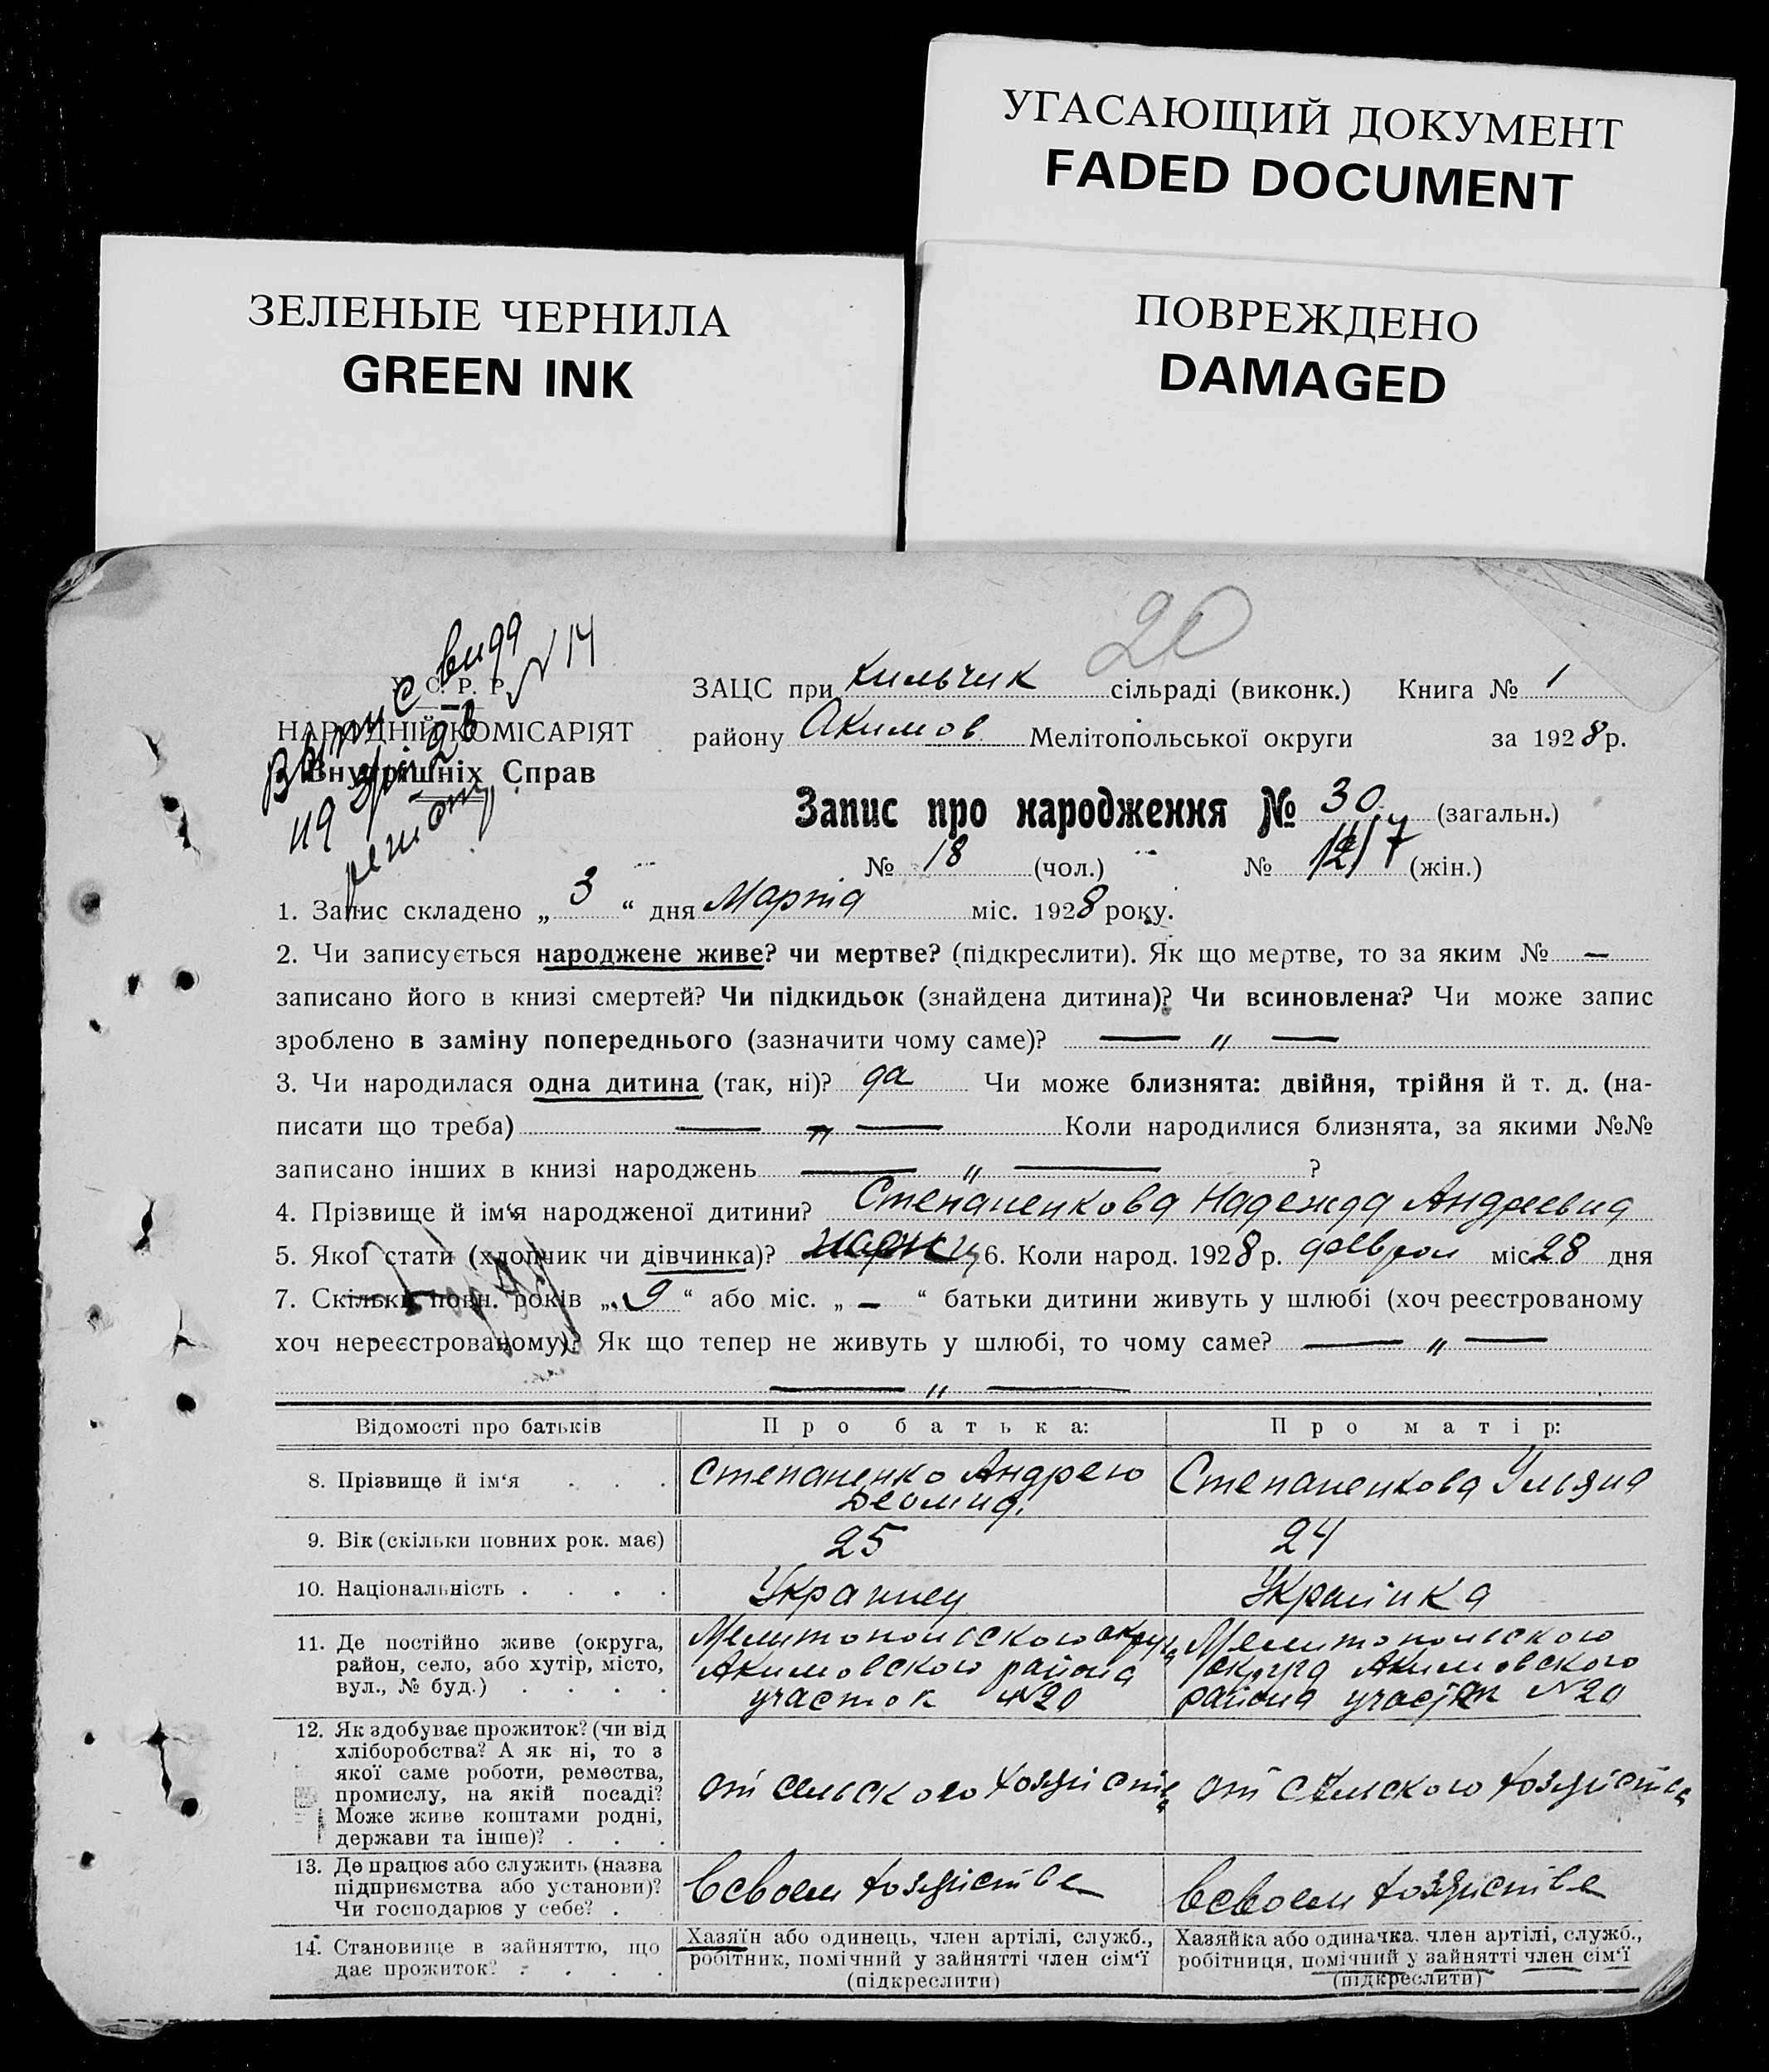 УГАСАЮЩИЙ ДОКУМЕНТ
FADED DOCUMENT
ЗЕЛЕНЫЕ ЧЕРНИЛА
GREEN INK
ПОВРЕЖДЕНО
DAMAGED
20
У. С. Р. Р.
НАРОДНІЙ КОМІСАРІЯТ
Внутрішніх Справ
ЗАЦС при Кильчик сільраді (виконк.) Книга № 1
району Акимов Мелітопольської округи за 1928 р.
Запис про народження № 30 (загальн.)
№ 18 (чол.) № (жін.)
1. Запис складено „ 3 “ дня Марта міс. 1928 року.
2. Чи записується народжене живе? чи мертве? (підкреслити). Як що мертве, то за яким № —
записано його в книзі смертей? Чи підкидьок (знайдена дитина)? Чи всиновлена? Чи може запис
зроблено в заміну попереднього (зазначити чому саме)? — „ —
3. Чи народилася одна дитина (так, ні)? да Чи може близнята: двійня, трійня й т. д. (на-
писати що треба) — „ — Коли народилися близнята, за якими №№
записано інших в книзі народжень — „ — ?
4. Прізвище й ім‘я народженої дитини? Степаненкова Надежда Андреевна
5. Якої стати (хлопчик чи дівчинка)? 6. Коли народ. 1928 р. феврал міс. 28 дня
7. Скільки повн. років „ 9 “ або міс. „ — “ батьки дитини живуть у шлюбі (хоч реєстрованому
хоч нереєстрованому)? Як що тепер не живуть у шлюбі, то чому саме? — „ —
— „ —
Відомості про батьків Про батька: Про матір:
8. Прізвище й ім‘я . . . Степаненко Андрею Степаненкова Ульяна
9. Вік (скільки повних рок. має) 25 24
10. Національність . . . . Украинец Українка
11. Де постійно живе (округа, Мелитопольского округа Мелитопольского
район, село, або хутір, місто, Акимовского района округа Акимовского
вул., № буд.) . . . . участок №20 района участок №20
12. Як здобуває прожиток? (чи від
хліборобства? А як ні, то з
якої саме роботи, ремества,
промислу, на якій посаді? от сельского хозяйства от сельского хозяйства
Може живе коштами родні,
держави та інше)? . . .
13. Де працює або служить (назва
підприємства або установи)? В своем хозяйстве В своем хозяйстве
Чи господарює у себе? .
14. Становище в зайняттю, що Хазяїн або одинець, член артілі, служб., Хазяйка або одиначка, член артілі, служб.,
дає прожиток? . . . . робітник, помічний у зайнятті член сім‘ї робітниця, помічний у зайнятті член сім‘ї
(підкреслити) (підкреслити)